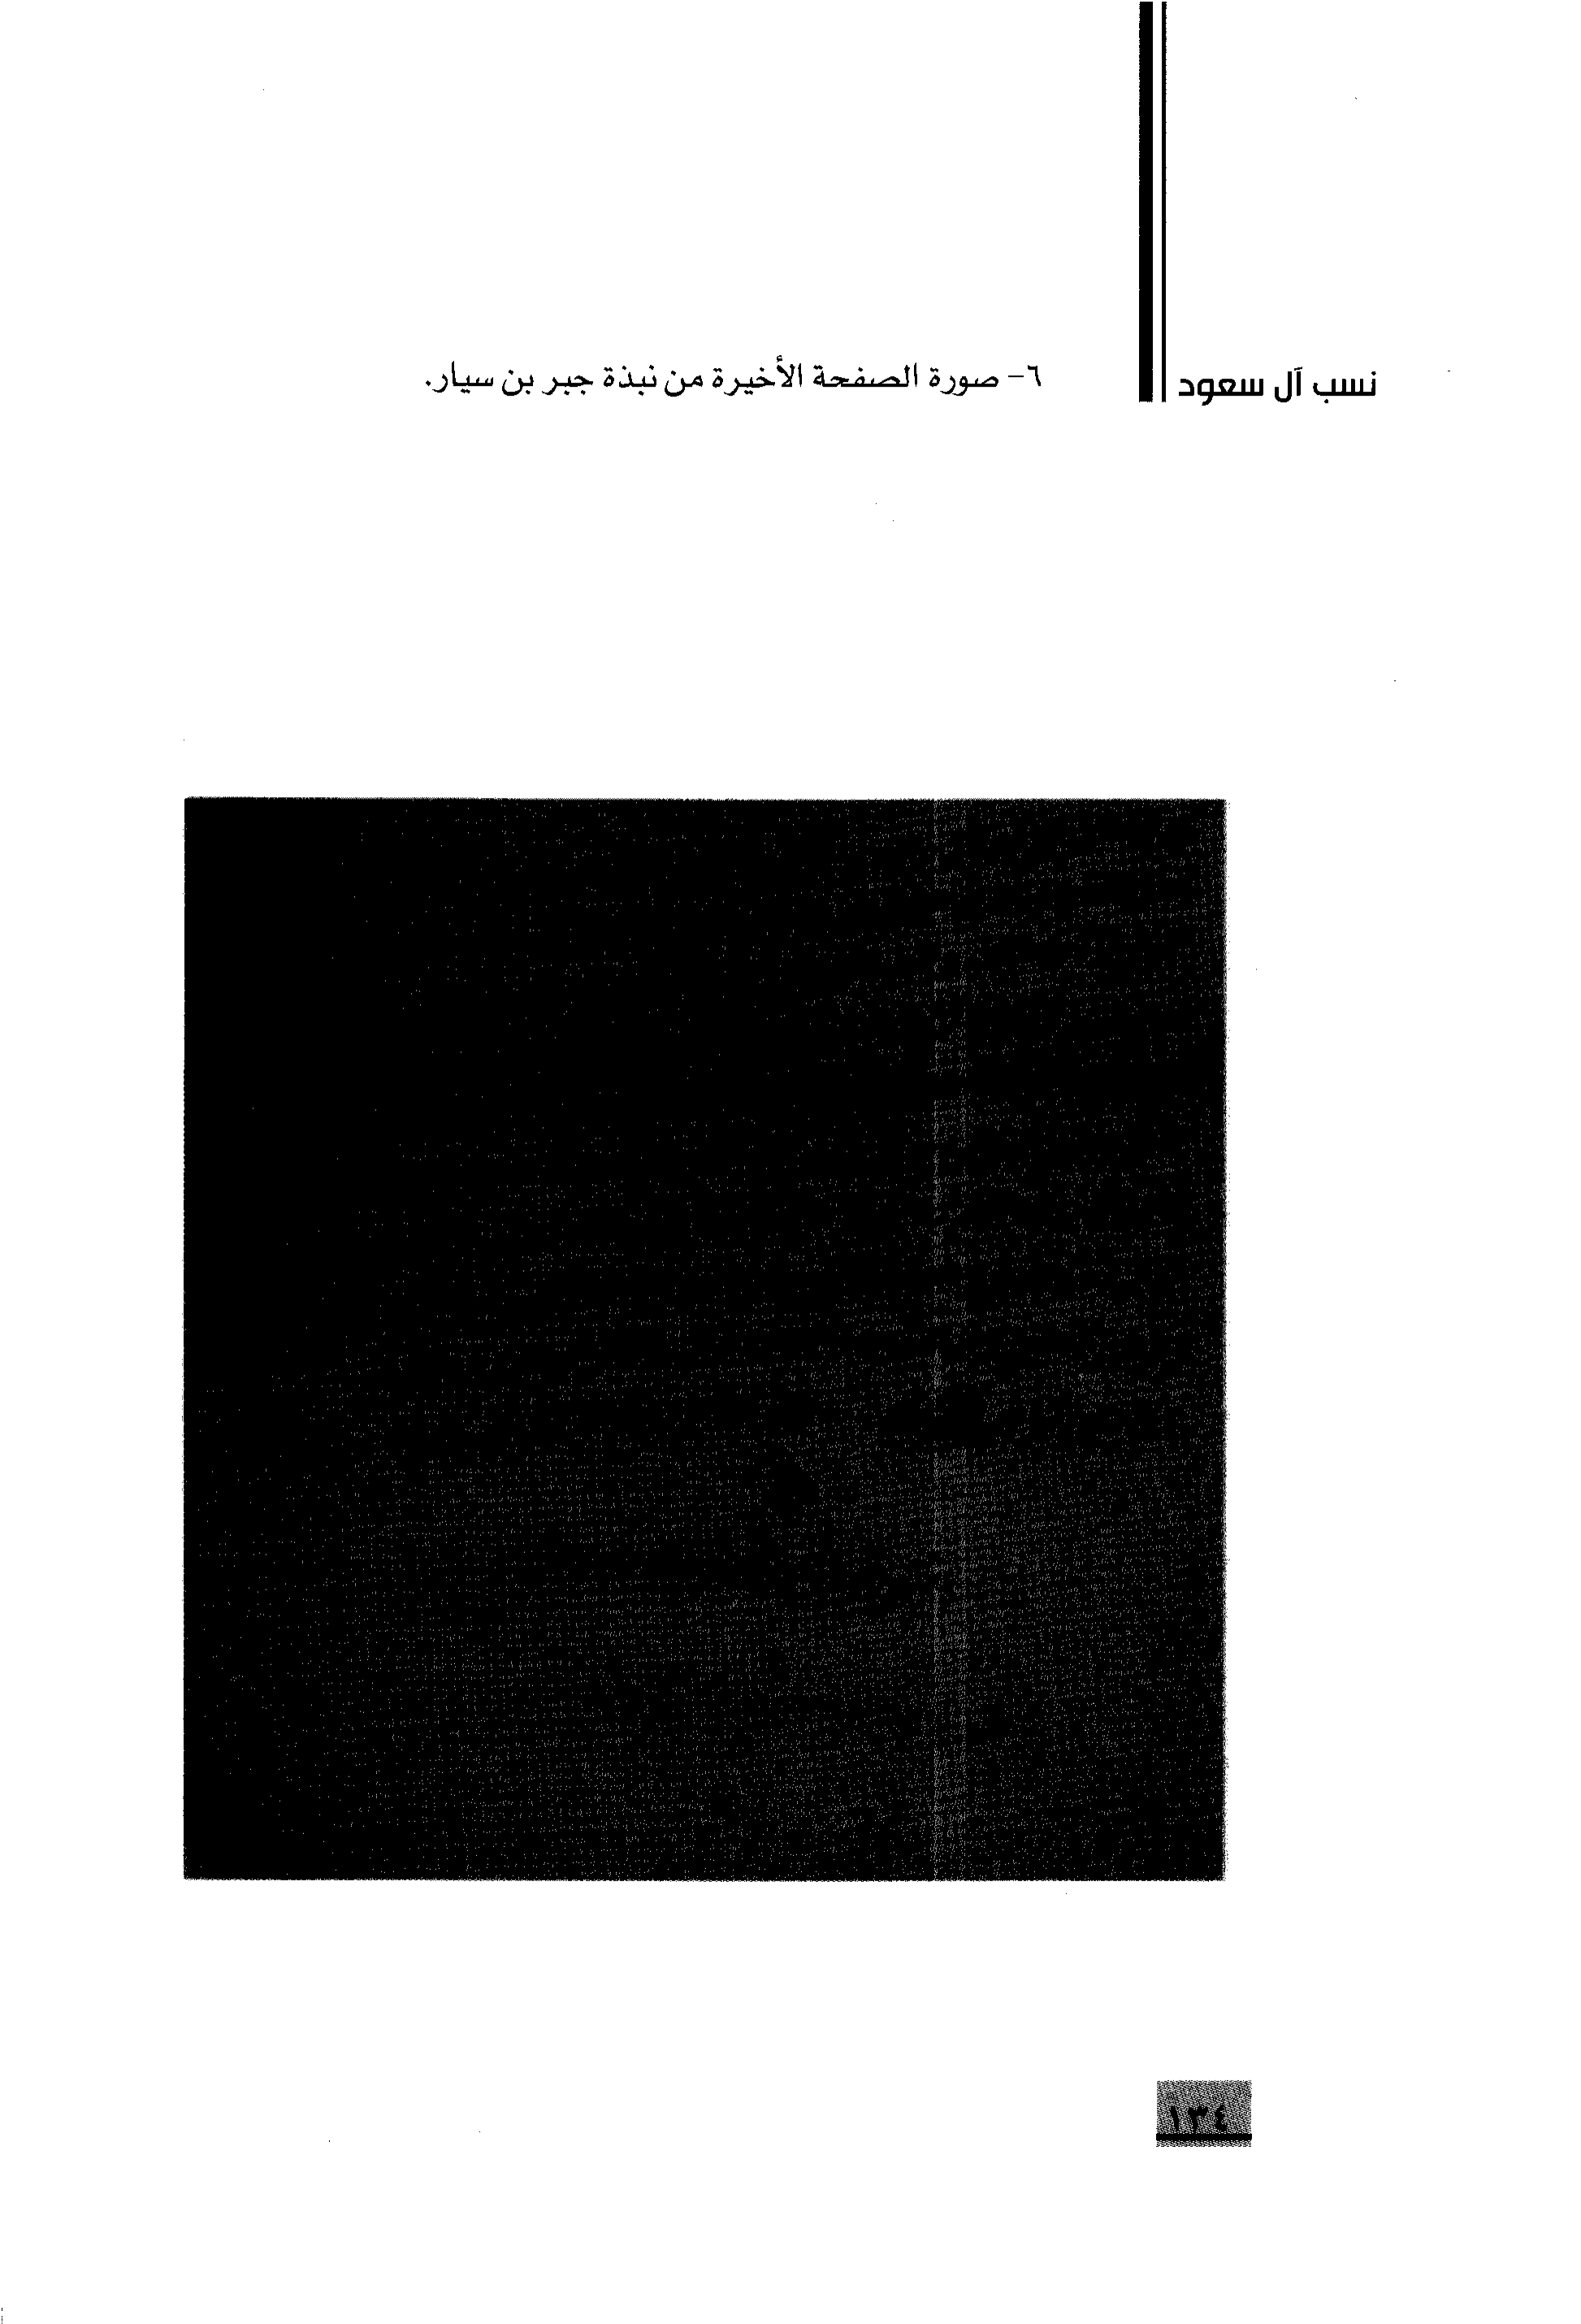 نسب آل سعود
٦- صورة الصفحة الأخيرة من نبذة جبر بن سيار.
١٣٤